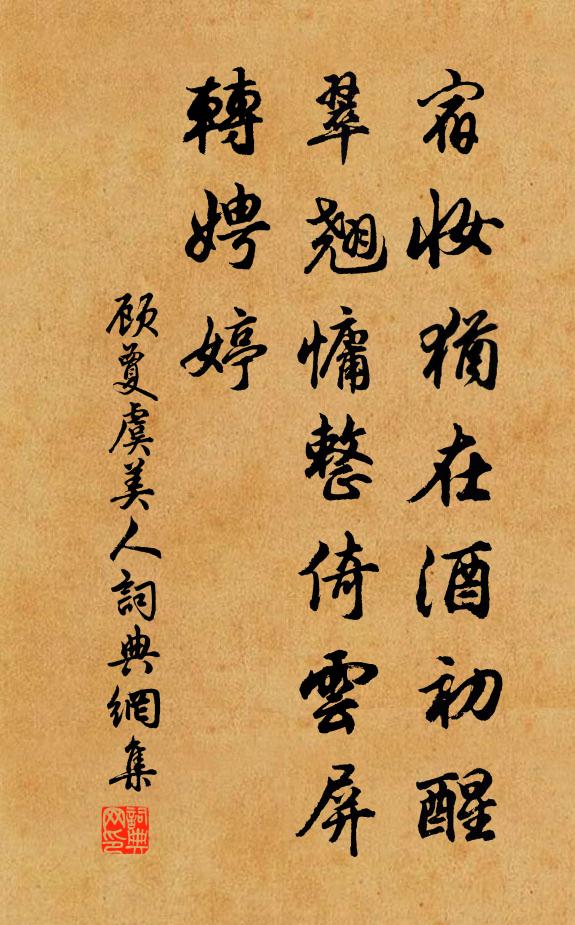 宿妝猶在酒初醒
翠翹慵整倚雲屏
轉娉婷
顧敻虞美人詞典網集
詞典网印